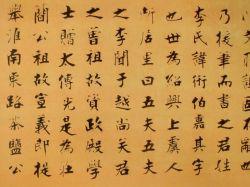 乃後而書之君
李氏諱衎伯嘉其字
也世為紹興上虞人
所居里曰五夫五夫
之李聞于越尚矣君
之曾祖故資政殿學
士贈太傅光是為莊
簡公祖故宣義郎提
舉淮南東路茶鹽公